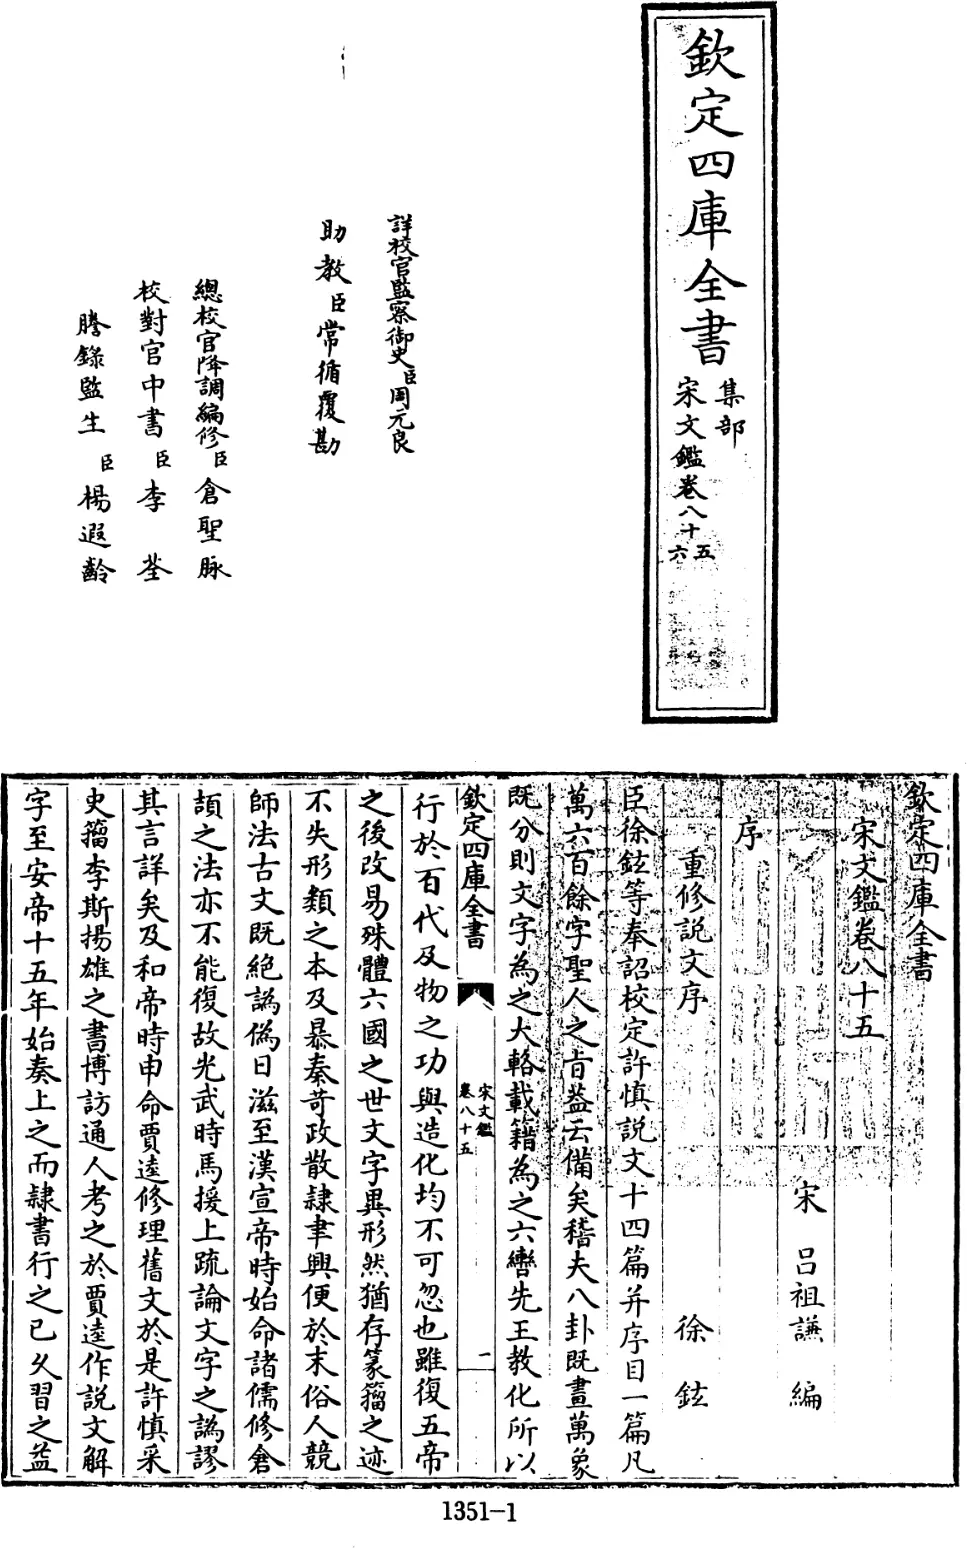 欽定四庫全書
集部
宋文鑑卷八十五
六
詳校官監察御史臣周元良
助教臣常循覆勘
總校官降調編修臣倉聖脉
校對官中書臣李荃
謄錄監生臣楊遐齡
欽定四庫全書
宋文鑑卷八十五
宋 呂祖謙 編
序
重修説文序 徐鉉
臣徐鉉等奉詔校定許慎説文十四篇并序目一篇凡
萬六百餘字聖人之旨葢云備矣稽夫八卦既畫萬象
既分則文字為之大輅載籍為之六轡先王教化所以
欽定四庫全書
宋文鑑
卷八十五
一
行於百代及物之功與造化均不可忽也雖復五帝
之後改易殊體六國之世文字異形然猶存篆籀之迹
不失形類之本及暴秦苛政散隷聿興便於末俗人競
師法古文既絶譌偽日滋至漢宣帝時始命諸儒修倉
頡之法亦不能復故光武時馬援上疏論文字之譌謬
其言詳矣及和帝時申命賈逵修理舊文於是許慎采
史籀李斯揚雄之書博訪通人考之於賈逵作説文解
字至安帝十五年始奏上之而隷書行之已久習之益
1351-1